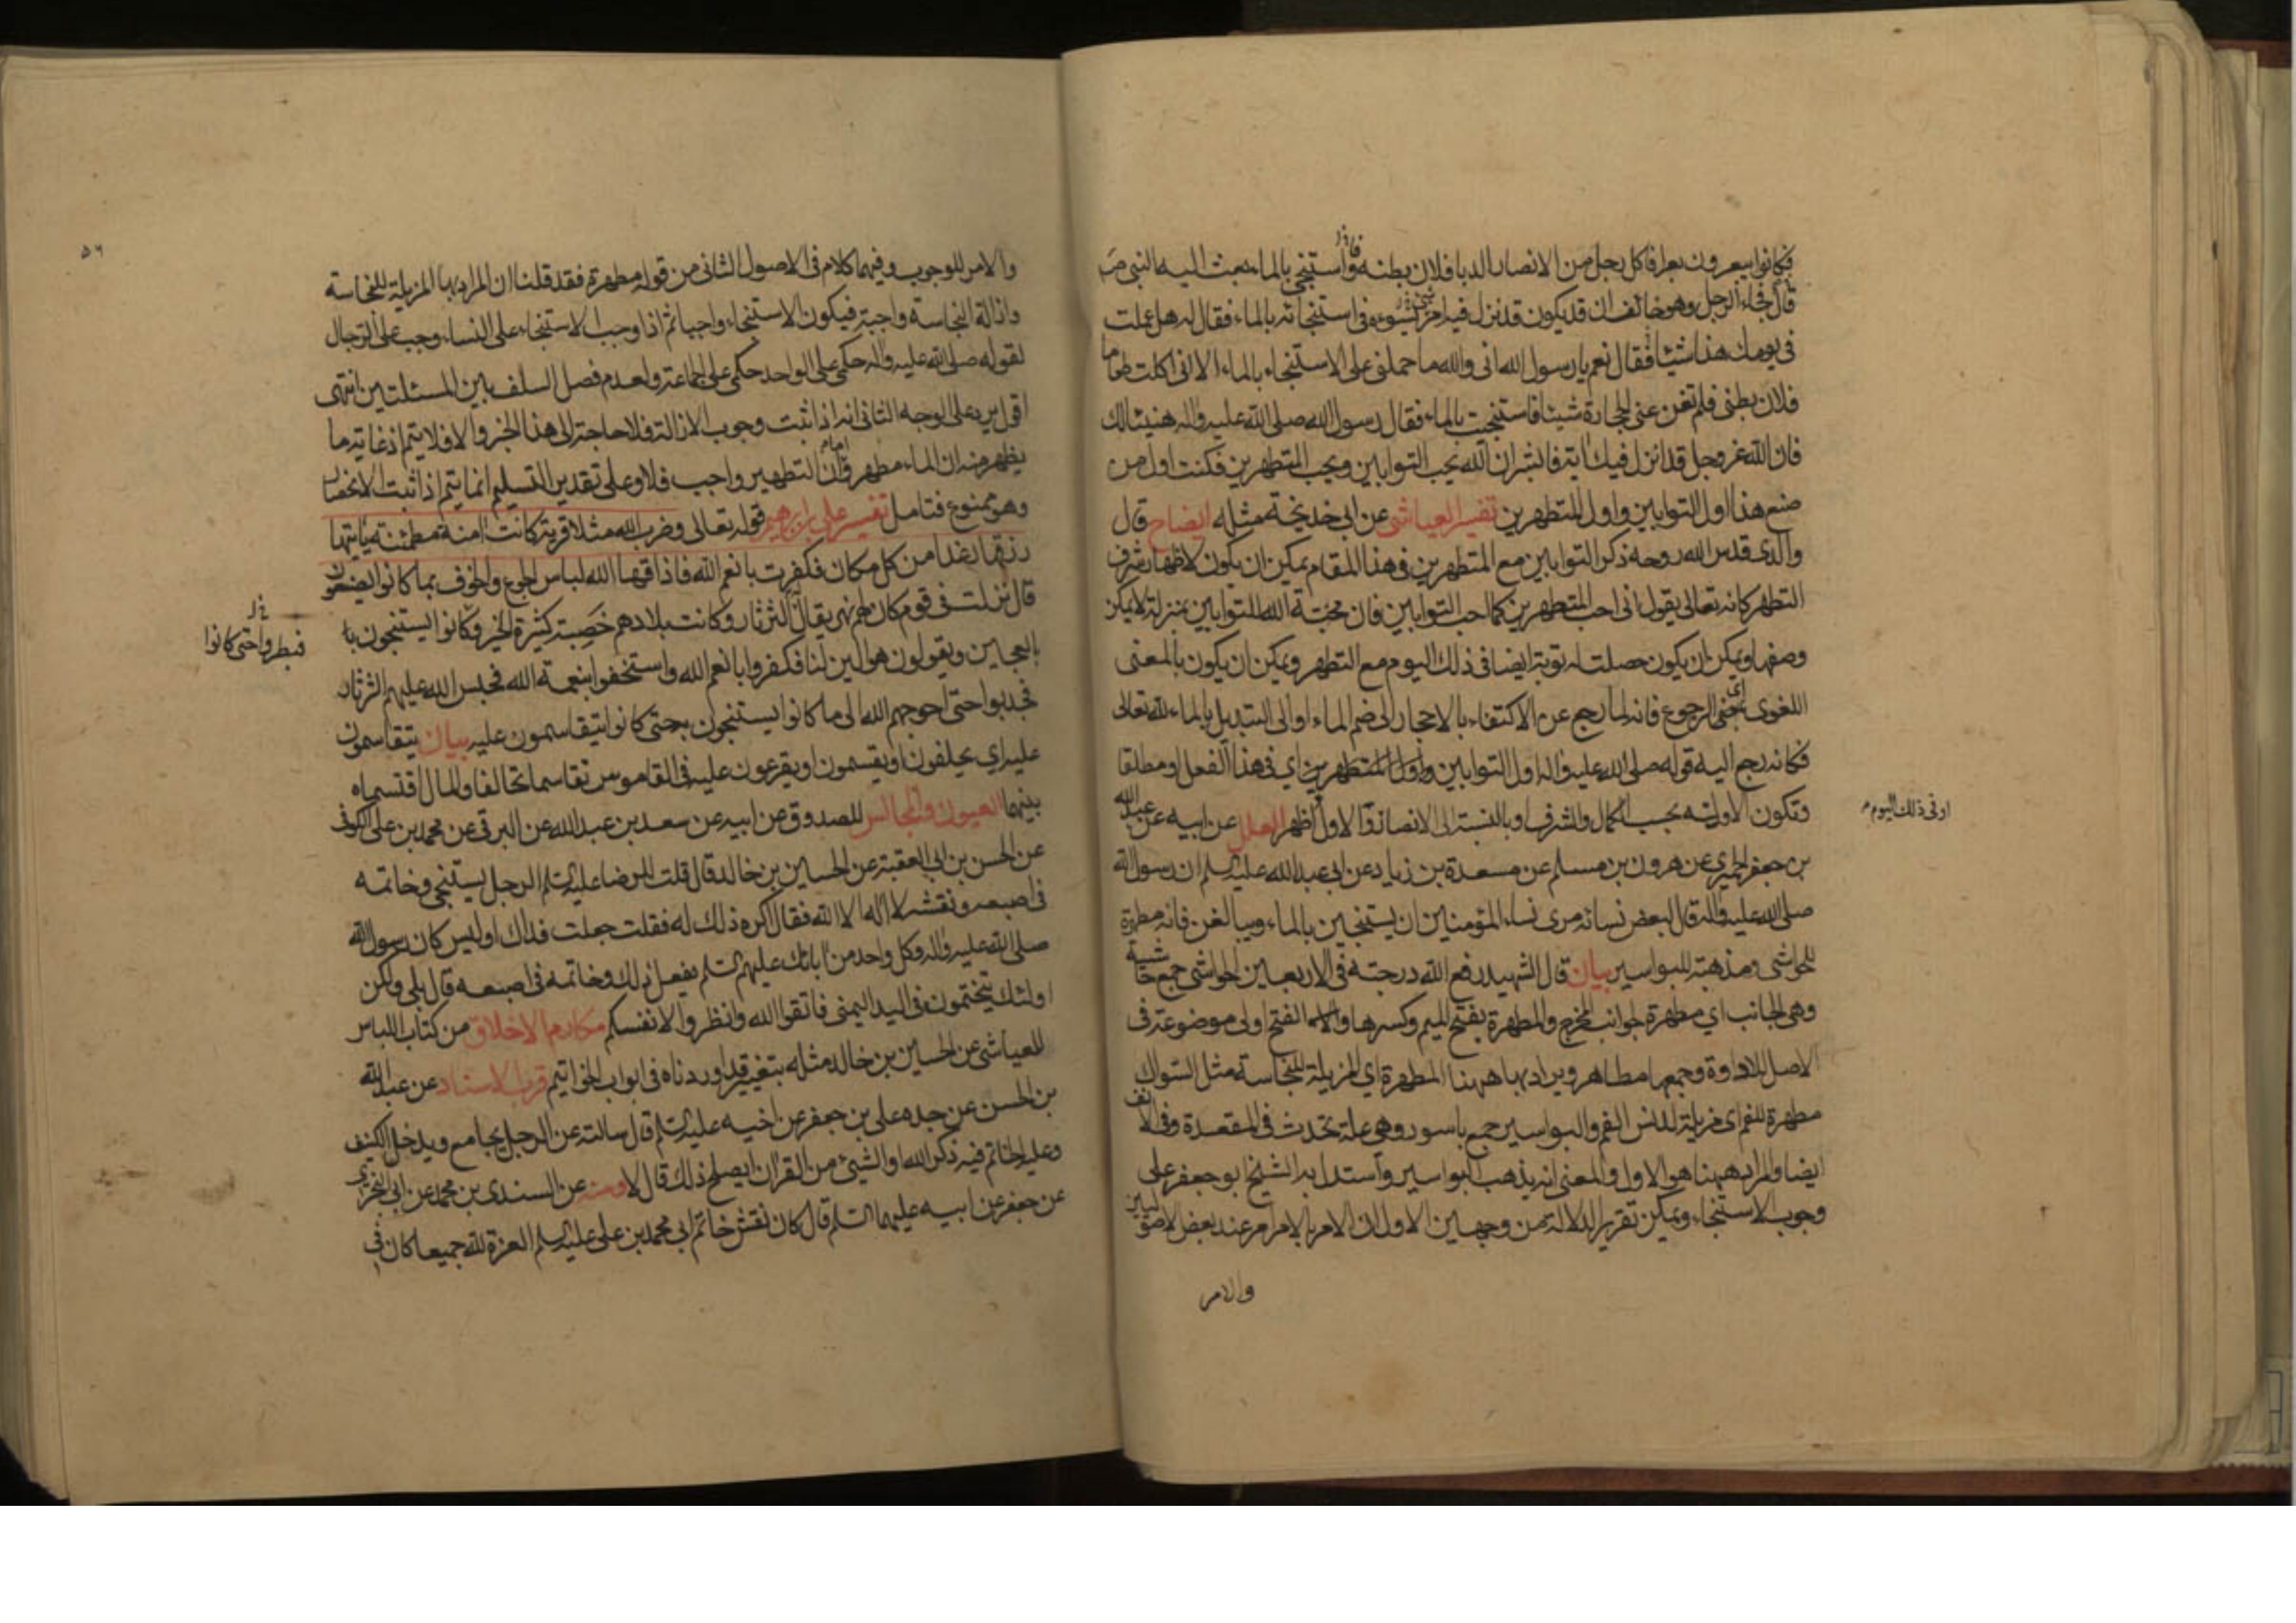 فكانوا يبعرون بعرا فاكل رجل من الانصار الدبا فلان بطنه واستنجى بالماء بعث اليه النبي ص
قال فجاء الرجل وهو خائف ان قد يكون قد نزل فيه امر يسوءه في استنجائه بالماء فقال له هل عملت
في يومك هذا شيئا فقال نعم يا رسول الله اني والله ما حملني على الاستنجاء بالماء الا اني اكلت طعاما
فلان بطني فلم تغن عني الحجارة شيئا فاستنجيت بالماء فقال رسول الله صلى الله عليه واله هنيئا لك
فان الله عز وجل قد انزل فيك اية فابشر ان الله يحب التوابين ويحب المتطهرين فكنت اول من
صنع هذا اول التوابين واول المتطهرين تفسير العياشي عن ابي خديجة مثله ايضاح قال
والدي قدس الله روحه ذكر التوابين مع المتطهرين في هذا المقام يمكن ان يكون لاظهار شرف
التطهر كانه تعالى يقول اني احب المتطهرين كما احب التوابين فان محبة الله للتوابين بمنزلة لا يمكن
وصفها ويمكن ان يكون حصلت له توبة ايضا في ذلك اليوم مع التطهر ويمكن ان يكون بالمعنى
اللغوي اي الرجوع فانه لما رجع عن الاكتفاء بالاحجار الى ضم الماء او الى التبديل بالماء لله تعالى
فكانه رجع اليه قوله صلى الله عليه واله اول التوابين واول المتطهرين اي في هذا الفعل او مطلقا
او في ذلك اليوم
وتكون الاولية بحسب الكمال والشرف او بالنسبة الى الانصار والاول اظهر العلل عن ابيه عن عبد الله
بن جعفر الحميري عن هرون بن مسلم عن مسعدة بن زياد عن ابي عبد الله عليه السلم ان رسول الله
صلى الله عليه واله قال لبعض نسائه مري نساء المؤمنين ان يستنجين بالماء ويبالغن فانه مطهرة
للحواشي ومذهبة للبواسير بيان قال الشهيد رفع الله درجته في الاربعين الحواشي جمع حاشية
وهي الجانب اي مطهرة لجوانب المخرج والمطهرة بفتح الميم وكسرها والفتح اولى موضوعة في
الاصل للاداوة وجمعها مطاهر ويراد بها ههنا المطهرة اي المزيلة للنجاسة مثل السواك
مطهرة للفم اي مزيلة لدنس الفم والبواسير جمع باسور وهي علة تحدث في المقعدة وفي الانف
ايضا والمراد ههنا هو الاول والمعنى انه يذهب البواسير واستدل به الشيخ ابو جعفر على
وجوب الاستنجاء ويمكن تقرير الدلالة من وجهين الاول ان الامر بالامر امر عند بعض الاصوليين
والامر
٥٦
والامر للوجوب وفيهما كلام في الاصول الثاني من قوله مطهرة فقد قلنا ان المراد بها المزيلة للنجاسة
وازالة النجاسة واجبة فيكون الاستنجاء واجبا ثم اذا وجب الاستنجاء على النساء وجب على الرجال
لقوله صلى الله عليه واله حكمي على الواحد حكمي على الجماعة ولعدم فصل السلف بين المسئلتين انتهى
اقول يرد على الوجه الثاني انه اذا ثبت وجوب الازالة فلا حاجة الى هذا الخبر والا فلا يتم اذ غاية ما
يظهر منه ان الماء مطهر واما ان التطهير واجب فلا وعلى تقدير التسليم انما يتم اذا ثبت الانحصار
وهو ممنوع فتامل تفسير علي بن ابراهيم قوله تعالى وضرب الله مثلا قرية كانت امنة مطمئنة ياتيها
رزقها رغدا من كل مكان فكفرت بانعم الله فاذاقها الله لباس الجوع والخوف بما كانوا يصنعون
قال نزلت في قوم كان لهم نهر يقال له الثرثار وكانت بلادهم خصبة كثيرة الخير وكانوا يستنجون با
فبطروا حتى كانوا
بالعجين ويقولون هو الين لنا فكفروا بانعم الله واستخفوا بنعمة الله فحبس الله عليهم الثرثار
فجدبوا حتى احوجهم الله الى ما كانوا يستنجون به حتى كانوا يتقاسمون عليه بيان يتقاسمون
عليه اي يحلفون او يقسمون او يقرعون عليه في القاموس تقاسما تحالفا والمال اقتسماه
بينهما العيون والمجالس للصدوق عن ابيه عن سعد بن عبد الله عن البرقي عن محمد بن علي الكوفي
عن الحسن بن ابي العقبة عن الحسين بن خالد قال قلت للرضا عليه السلم الرجل يستنجي وخاتمه
في اصبعه ونقشه لا اله الا الله فقال اكره ذلك له فقلت جعلت فداك اوليس كان رسول الله
صلى الله عليه واله وكل واحد من ابائك عليهم السلم يفعل ذلك وخاتمه في اصبعه قال بلى ولكن
اولئك يتختمون في اليد اليمنى فاتقوا الله وانظروا لانفسكم مكارم الاخلاق من كتاب اللباس
للعياشي عن الحسين بن خالد مثله بتغيير قد اوردناه في ابواب الخواتيم قرب الاسناد عن عبد الله
بن الحسن عن جده علي بن جعفر عن اخيه عليه السلم قال سالته عن الرجل يجامع ويدخل الكنيف
وعليه الخاتم فيه ذكر الله او الشيئ من القران ايصلح ذلك قال لا ومنه عن السندي بن محمد عن ابي البختري
عن جعفر عن ابيه عليهما السلم قال كان نقش خاتم ابي محمد بن علي عليه السلم العزة لله جميعا كان في